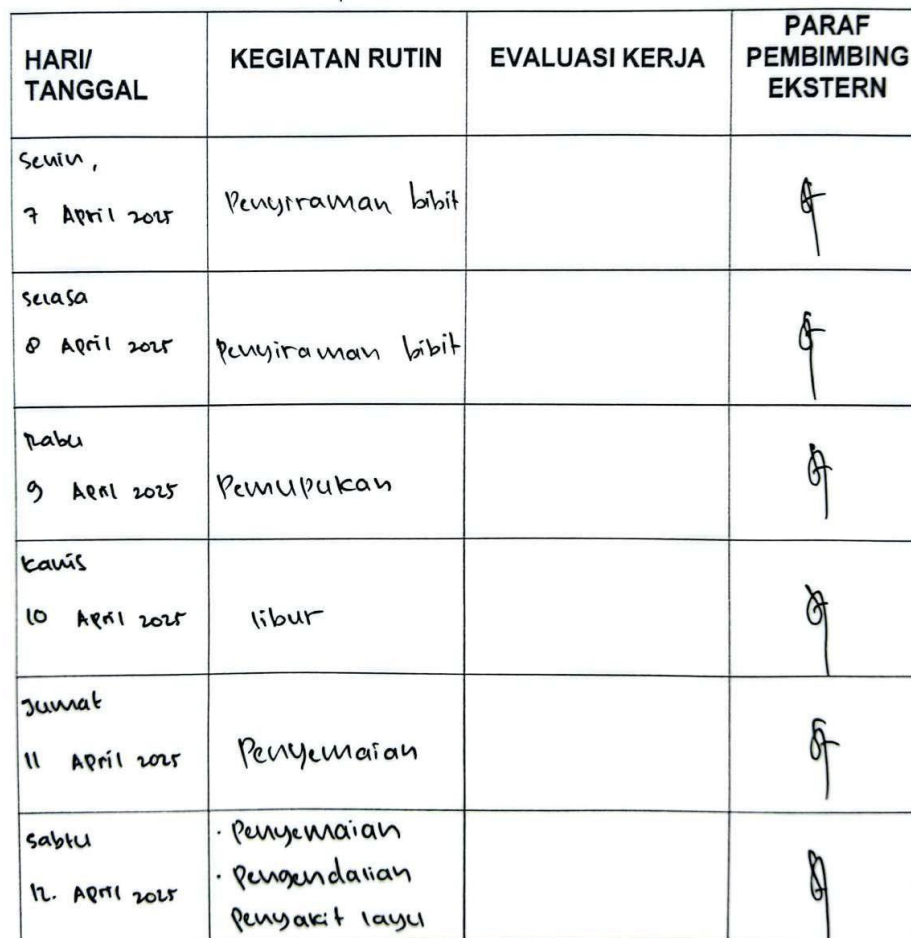 HARI/
TANGGAL
KEGIATAN RUTIN
EVALUASI KERJA
PARAF
PEMBIMBING
EKSTERN
Senin,
7 April 2025
Penyiraman bibit
Selasa
8 April 2025
Penyiraman bibit
Rabu
9 April 2025
Pemupukan
Kamis
10 April 2025
libur
Jumat
11 April 2025
Penyemaian
Sabtu
12. April 2025
· Penyemaian
· Pengendalian
Penyakit layu